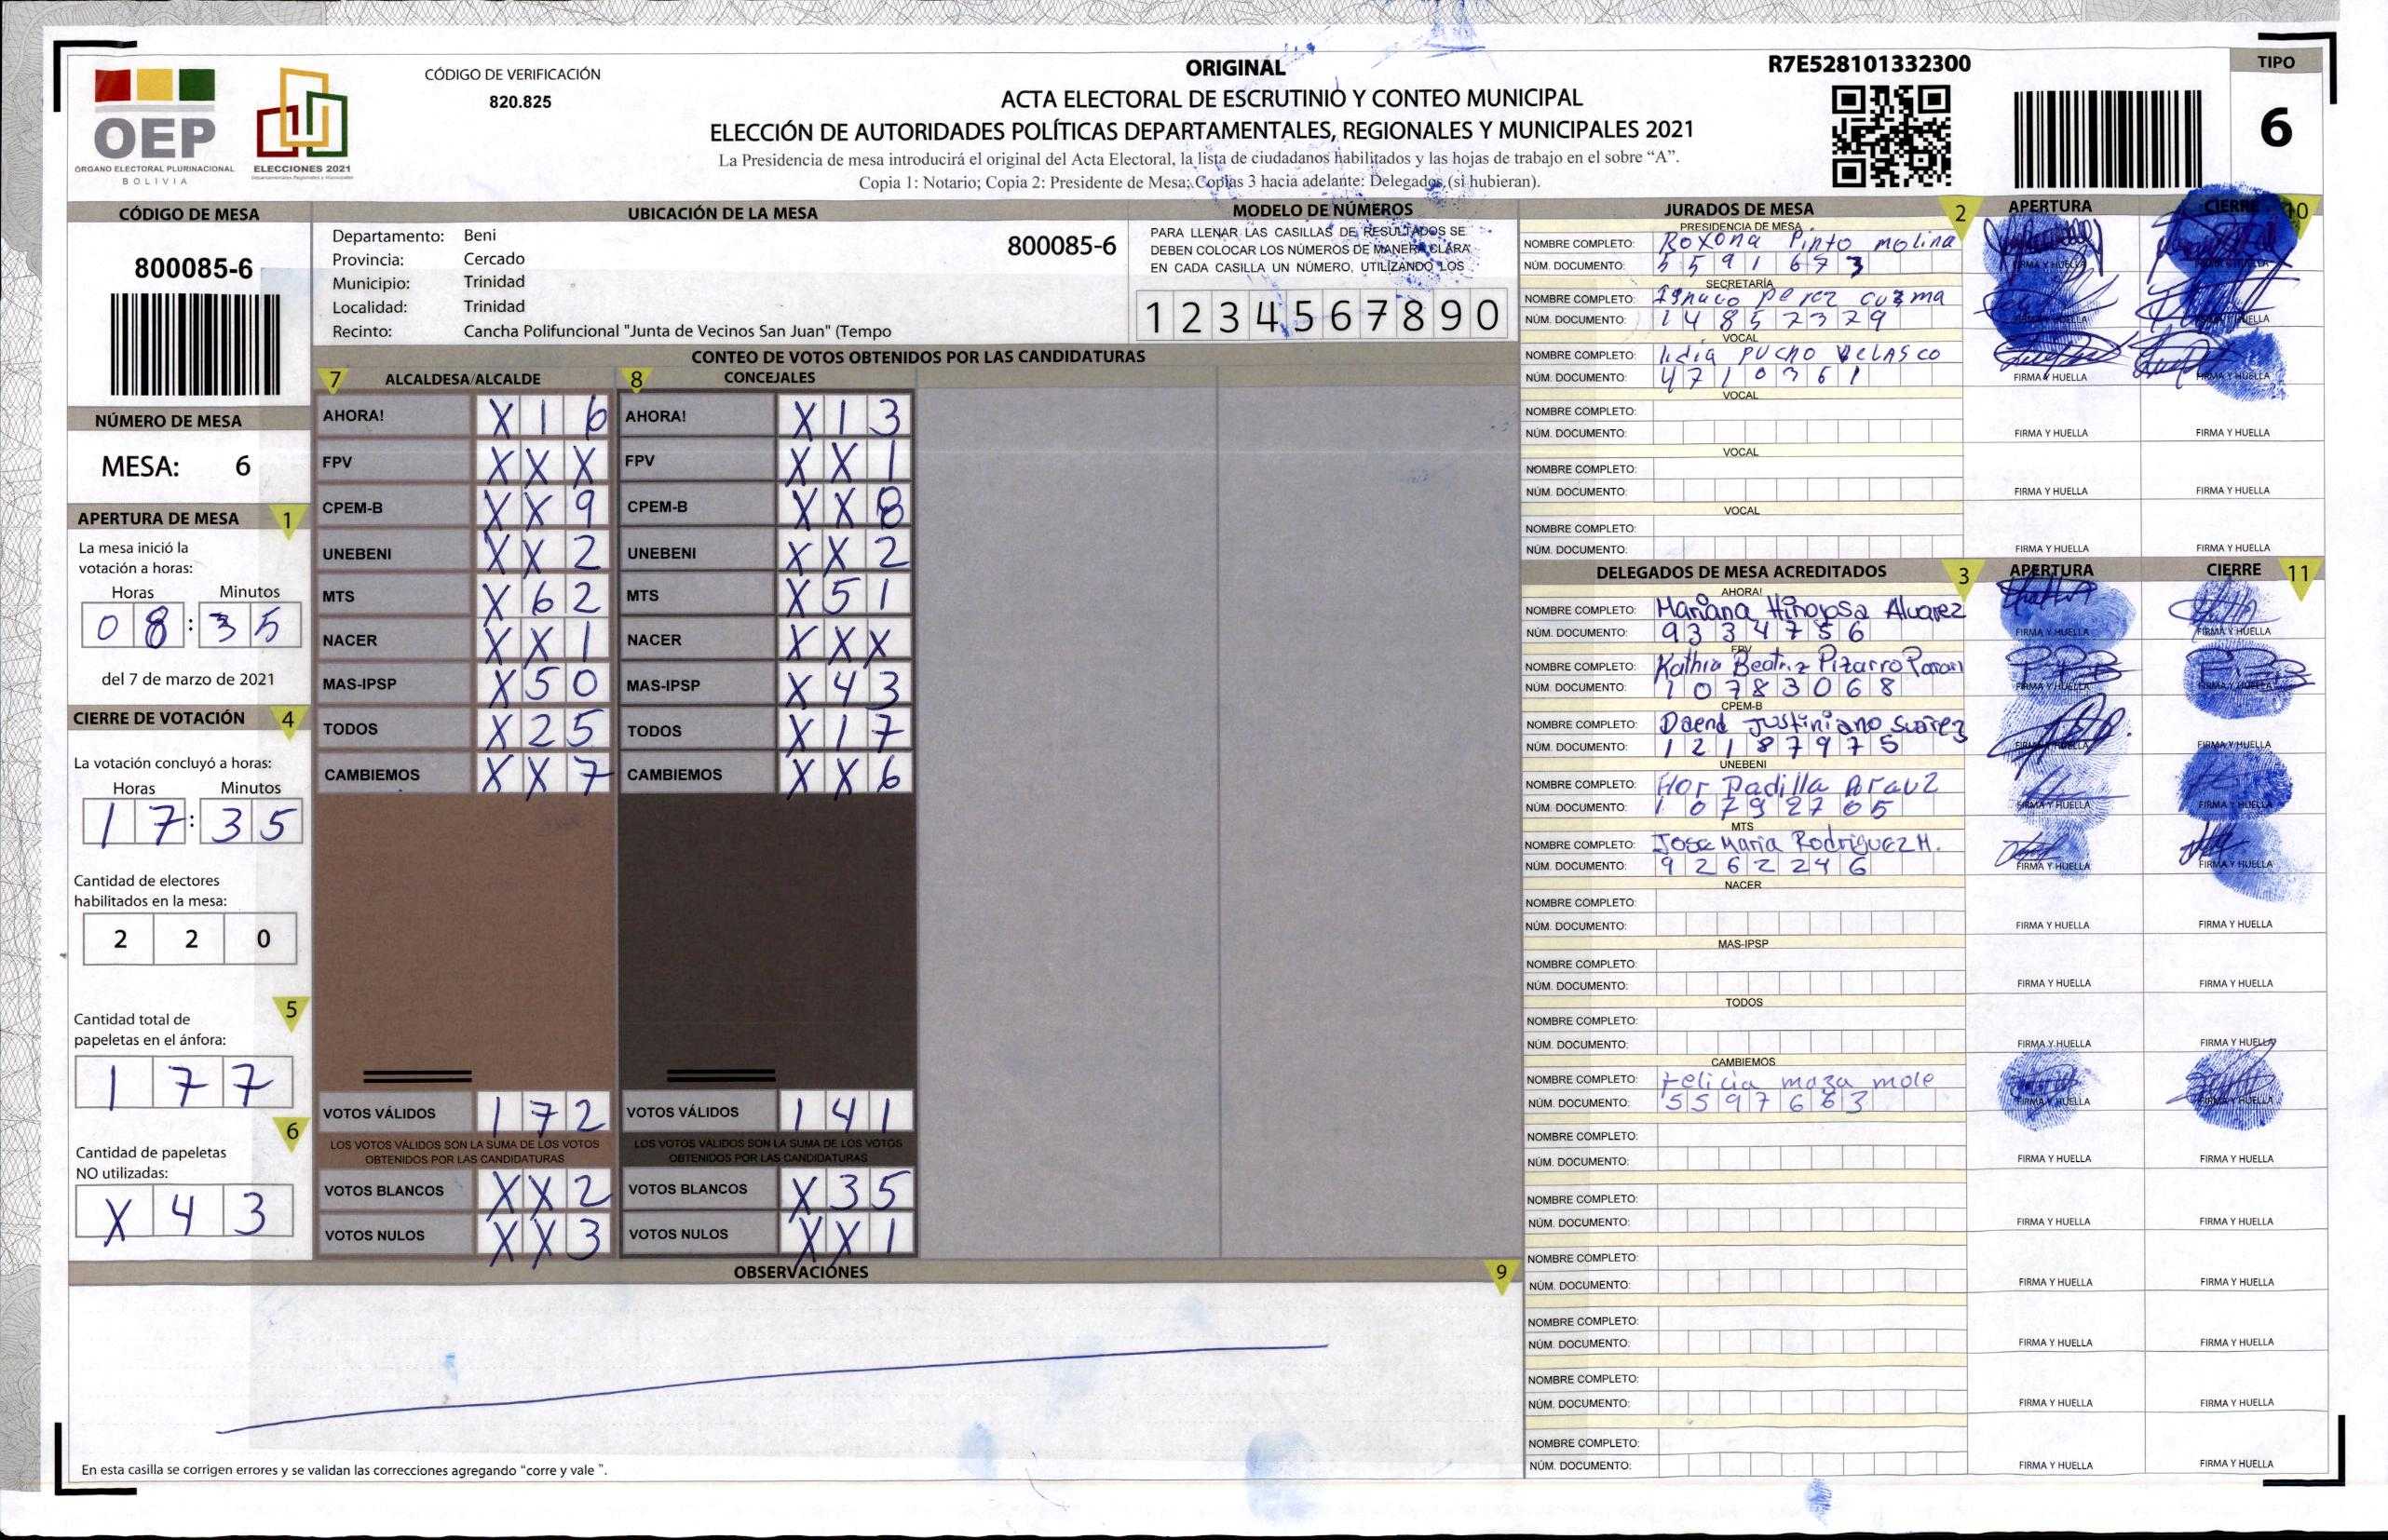 ORIGINAL
R7E528101332300
TIPO
6
CÓDIGO DE VERIFICACIÓN
820.825
OEP
ÓRGANO ELECTORAL PLURINACIONAL
BOLIVIA
ELECCIONES 2021
ACTA ELECTORAL DE ESCRUTINIO Y CONTEO MUNICIPAL
ELECCIÓN DE AUTORIDADES POLÍTICAS DEPARTAMENTALES, REGIONALES Y MUNICIPALES 2021
La Presidencia de mesa introducirá el original del Acta Electoral, la lista de ciudadanos habilitados y las hojas de trabajo en el sobre “A”.
Copia 1: Notario; Copia 2: Presidente de Mesa; Copias 3 hacia adelante: Delegados (si hubieran).
CÓDIGO DE MESA
800085-6
NÚMERO DE MESA
MESA: 6
APERTURA DE MESA 1
La mesa inició la
votación a horas:
Horas Minutos
08:35
del 7 de marzo de 2021
CIERRE DE VOTACIÓN 4
La votación concluyó a horas:
Horas Minutos
17:35
Cantidad de electores
habilitados en la mesa:
2 2 0
5
Cantidad total de
papeletas en el ánfora:
1 7 7
6
Cantidad de papeletas
NO utilizadas:
X 4 3
UBICACIÓN DE LA MESA
Departamento: Beni
800085-6
Provincia: Cercado
Municipio: Trinidad
Localidad: Trinidad
Recinto: Cancha Polifuncional "Junta de Vecinos San Juan" (Tempo
MODELO DE NÚMEROS
PARA LLENAR LAS CASILLAS DE RESULTADOS SE
DEBEN COLOCAR LOS NÚMEROS DE MANERA CLARA
EN CADA CASILLA UN NÚMERO, UTILIZANDO LOS
1 2 3 4 5 6 7 8 9 0
CONTEO DE VOTOS OBTENIDOS POR LAS CANDIDATURAS
7 ALCALDESA/ALCALDE 8 CONCEJALES
AHORA! X 1 6 AHORA! X 1 3
FPV X X X FPV X X 1
CPEM-B X X 9 CPEM-B X X 8
UNEBENI X X 2 UNEBENI X X 2
MTS X 6 2 MTS X 5 1
NACER X X 1 NACER X X X
MAS-IPSP X 5 0 MAS-IPSP X 4 3
TODOS X 2 5 TODOS X 1 7
CAMBIEMOS X X 7 CAMBIEMOS X X 6
VOTOS VÁLIDOS 1 7 2 VOTOS VÁLIDOS 1 4 1
LOS VOTOS VÁLIDOS SON LA SUMA DE LOS VOTOS LOS VOTOS VÁLIDOS SON LA SUMA DE LOS VOTOS
OBTENIDOS POR LAS CANDIDATURAS OBTENIDOS POR LAS CANDIDATURAS
VOTOS BLANCOS X X 2 VOTOS BLANCOS X 3 5
VOTOS NULOS X X 3 VOTOS NULOS X X 1
OBSERVACIONES 9
En esta casilla se corrigen errores y se validan las correcciones agregando “corre y vale ”.
JURADOS DE MESA 2 APERTURA CIERRE 10
PRESIDENCIA DE MESA
NOMBRE COMPLETO: Roxona Pinto molina
NÚM. DOCUMENTO: 5591673
SECRETARÍA
NOMBRE COMPLETO: Ignaco perez cuzma
NÚM. DOCUMENTO: 14852379
VOCAL
NOMBRE COMPLETO: lidia PUCHO VELASCO
NÚM. DOCUMENTO: 4710361
FIRMA Y HUELLA FIRMA Y HUELLA
VOCAL
NOMBRE COMPLETO:
NÚM. DOCUMENTO: FIRMA Y HUELLA FIRMA Y HUELLA
VOCAL
NOMBRE COMPLETO:
NÚM. DOCUMENTO: FIRMA Y HUELLA FIRMA Y HUELLA
VOCAL
NOMBRE COMPLETO:
NÚM. DOCUMENTO: FIRMA Y HUELLA FIRMA Y HUELLA
DELEGADOS DE MESA ACREDITADOS 3 APERTURA CIERRE 11
AHORA!
NOMBRE COMPLETO: Mariana Hinojosa Alvarez
NÚM. DOCUMENTO: 9334756 FIRMA Y HUELLA FIRMA Y HUELLA
FPV
NOMBRE COMPLETO: Kathia Beatriz Pizarro
NÚM. DOCUMENTO: 10783068 FIRMA Y HUELLA FIRMA Y HUELLA
CPEM-B
NOMBRE COMPLETO: Daend Justiniano Suarez
NÚM. DOCUMENTO: 12187975 FIRMA Y HUELLA FIRMA Y HUELLA
UNEBENI
NOMBRE COMPLETO: Flor Padilla Arauz
NÚM. DOCUMENTO: 10792705 FIRMA Y HUELLA FIRMA Y HUELLA
MTS
NOMBRE COMPLETO: Jose Maria Rodriguez H.
NÚM. DOCUMENTO: 9262246 FIRMA Y HUELLA FIRMA Y HUELLA
NACER
NOMBRE COMPLETO:
NÚM. DOCUMENTO: FIRMA Y HUELLA FIRMA Y HUELLA
MAS-IPSP
NOMBRE COMPLETO:
NÚM. DOCUMENTO: FIRMA Y HUELLA FIRMA Y HUELLA
TODOS
NOMBRE COMPLETO:
NÚM. DOCUMENTO: FIRMA Y HUELLA FIRMA Y HUELLA
CAMBIEMOS
NOMBRE COMPLETO: Felicia moza mole
NÚM. DOCUMENTO: 5597663 FIRMA Y HUELLA FIRMA Y HUELLA
NOMBRE COMPLETO:
NÚM. DOCUMENTO: FIRMA Y HUELLA FIRMA Y HUELLA
NOMBRE COMPLETO:
NÚM. DOCUMENTO: FIRMA Y HUELLA FIRMA Y HUELLA
NOMBRE COMPLETO:
NÚM. DOCUMENTO: FIRMA Y HUELLA FIRMA Y HUELLA
NOMBRE COMPLETO:
NÚM. DOCUMENTO: FIRMA Y HUELLA FIRMA Y HUELLA
NOMBRE COMPLETO:
NÚM. DOCUMENTO: FIRMA Y HUELLA FIRMA Y HUELLA
NOMBRE COMPLETO:
NÚM. DOCUMENTO: FIRMA Y HUELLA FIRMA Y HUELLA